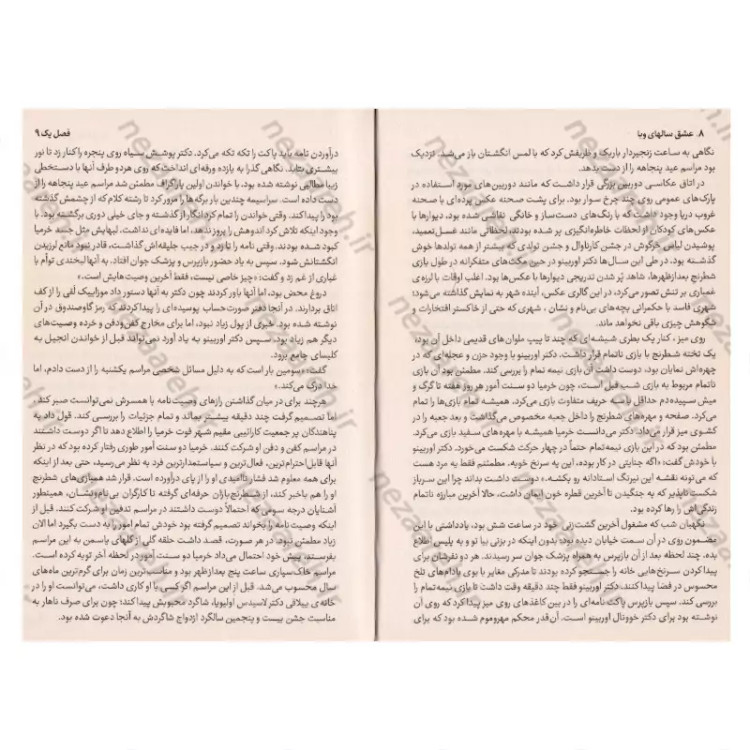 ۸. عشق سالهای وبا
نگاهی به ساعت زنجیردار باریک و ظریفش کرد که با لمس انگشتان باز می‌شد. نزدیک
بود مراسم عید پنجاهه را از دست بدهد.
در اتاق عکاسی دوربین بزرگی قرار داشت که مانند دوربین‌های مورد استفاده در
پارک‌های عمومی روی چند چرخ سوار بود. برای پشت صحنه عکس پرده‌ای با صحنه
غروب دریا وجود داشت که با رنگ‌های دست‌ساز و خانگی نقاشی شده بود. دیوارها با
عکس‌های کودکان از لحظات خاطره‌انگیزی پر شده بودند، لحظاتی مانند غسل‌تعمید،
پوشیدن لباس خرگوش در جشن کارناوال و جشن تولدی که بیشتر از همه تولدها خوش
گذشته بود. در طی این سال‌ها دکتر اوربینو در حین مکث‌های متفکرانه در طول بازی
شطرنج بعدازظهرها، شاهد پُر شدن تدریجی دیوارها با عکس‌ها بود. اغلب اوقات با لرزه‌ی
غمباری بر تنش تصور می‌کرد، در این گالری عکس، آینده شهر به نمایش گذاشته می‌شود؛
شهری فاسد با حکمرانی بچه‌های بی‌نام و نشان ، شهری که حتی از خاکستر افتخارات و
شکوهش چیزی باقی نخواهد ماند.
روی میز ، کنار یک بطری شیشه‌ای که چند تا پیپ ملوان‌های قدیمی داخل آن بود،
یک تخته شطرنج با بازی ناتمام قرار داشت. دکتر اوربینو با وجود حزن و عجله‌ای که در
چهره‌اش نمایان بود، دوست داشت آن بازی نیمه تمام را بررسی کند. مطمئن بود آن بازی
ناتمام مربوط به بازی شب قبل است، چون خرمیا دو سنت آمور هر روز هفته تا گرگ و
میش سپیده‌دم حداقل با سه حریف متفاوت بازی می‌کرد. همیشه تمام بازی‌ها را تمام
می‌کرد. صفحه و مهره‌های شطرنج را داخل جعبه مخصوص می‌گذاشت و بعد جعبه را در
کشوی میز قرار می‌داد. دکتر می‌دانست خرمیا همیشه با مهره‌های سفید بازی می‌کرد.
مطمئن بود که در این بازی نیمه‌تمام حتماً در چهار حرکت شکست می‌خورد. دکتر اوربینو
با خودش گفت: «اگه جنایتی در کار بوده، این یه سرنخ خوبه. مطمئنم فقط یه مرد هست
که می‌تونه نقشه این نیرنگ استادانه رو بکشه.» دوست داشت بداند چرا این سرباز
شکست‌ناپذیر که به جنگیدن تا آخرین قطره خون ایمان داشت، حالا آخرین مبارزه ناتمام
زندگی‌اش را رها کرده بود.
نگهبان شب که مشغول آخرین گشت‌زنی خود در ساعت شش بود، یادداشتی با این
مضمون روی در آن سمت خیابان دیده بود: بدون اینکه در بزنی بیا تو و به پلیس اطلاع
بده. چند لحظه بعد از آن بازپرس به همراه پزشک جوان سر رسیدند. هر دو نفرشان برای
پیدا کردن سرنخ‌هایی خانه را جستجو کرده بودند تا مدرکی مغایر با بوی بادام‌های تلخ
محسوس در فضا پیدا کنند. دکتر اوربینو فقط چند دقیقه وقت داشت تا بازی نیمه‌تمام را
بررسی کند. سپس بازپرس پاکت نامه‌ای را در بین کاغذهای روی میز پیدا کرد که روی آن
نوشته بود برای دکتر خوونال اوربینو است. آن‌قدر محکم مهروموم شده بود که برای
فصل یک ۹
درآوردن نامه باید پاکت را تکه تکه می‌کرد. دکتر پوشش سیاه روی پنجره را کنار زد تا نور
بیشتری بتابد. نگاهی گذرا به یازده ورقه‌ای انداخت که روی هر دو طرف آنها با دستخطی
زیبا مطالبی نوشته شده بود. با خواندن اولین پاراگراف مطمئن شد مراسم عید پنجاهه را از
دست داده است. سراسیمه چندین بار برگه‌ها را مرور کرد تا رشته کلام که از چشمش گذشته
بود را پیدا کند. وقتی خواندن را تمام کرد انگار از گذشته و جای خیلی دوری برگشته بود. با
وجود اینکه تلاش کرد اندوهش را بروز ندهد، اما فایده‌ای نداشت، لبهایش مثل جسد خرمیا
کبود شده بودند. وقتی نامه را تا زد و در جیب جلیقه‌اش گذاشت، قادر نبود مانع لرزیدن
انگشتانش شود. سپس به یاد حضور بازپرس و پزشک جوان افتاد، به آنها لبخندی توأم با
غباری از غم زد و گفت: «چیز خاصی نیست، فقط آخرین وصیت هایش است.»
دروغ محض بود، اما آنها باور کردند چون دکتر به آنها دستور داد موزاییک لقی را از کف
اتاق بردارند. در آنجا دفتر صورت‌حساب پوسیده‌ای را پیدا کردند که رمز گاوصندوق در آن
نوشته شده بود. خبری از پول زیاد نبود، اما برای مخارج کفن‌ودفن و خرده وصیت‌های
دیگر هم زیاد بود. سپس دکتر اوربینو به یاد آورد نمی‌تواند قبل از خواندن انجیل به
کلیسای جامع برود.
گفت: «سومین بار است که به دلیل مسائل شخصی مراسم یکشنبه را از دست دادم، اما
خدا درک می‌کند.»
هرچند برای در میان گذاشتن رازهای وصیت‌نامه با همسرش نمی‌توانست صبر کند ،
اما تصمیم گرفت چند دقیقه بیشتر بماند و تمام جزئیات را بررسی کند. قول داد به
پناهندگان پر جمعیت کارائیبی مقیم شهر فوت خرمیا را اطلاع دهد تا اگر دوست داشتند
در مراسم کفن و دفن او شرکت کنند. خرمیا دو سنت آمور طوری رفتار کرده بود که در نظر
آنها قابل‌احترام‌ترین، فعال‌ترین و سیاستمدارترین فرد به نظر می‌رسید، حتی بعد از اینکه
برای همه معلوم شد فشار ناامیدی او را از پای درآورده است. قرار شد همبازی‌های شطرنج
او را هم باخبر کند، از شطرنج‌بازان حرفه‌ای گرفته تا کارگران بی‌نام‌ونشان، همینطور
آشنایان درجه سومی که احتمالاً دوست داشتند در مراسم تدفین او شرکت کنند. قبل از
اینکه وصیت نامه را بخواند تصمیم گرفته بود خودش تمام امور را به دست بگیرد اما الان
زیاد مطمئن نبود. در هر صورت، قصد داشت حلقه گلی از گلهای یاسمن به این مراسم
بفرستد. پیش خود احتمال می‌داد خرمیا دو سنت آمور در لحظه آخر توبه کرده است.
مراسم خاک‌سپاری ساعت پنج بعدازظهر بود و مناسب‌ترین زمان برای گرم‌ترین ماه‌های
سال محسوب می‌شد. قبل از این مراسم اگر کسی با او کاری داشت، می‌توانست او را در
خانه‌ی ییلاقی دکتر لاسیدس اولیویا، شاگرد محبوبش پیدا کند؛ چون برای صرف ناهار به
مناسبت جشن بیست و پنجمین سالگرد ازدواج شاگردش به آنجا دعوت شده بود.